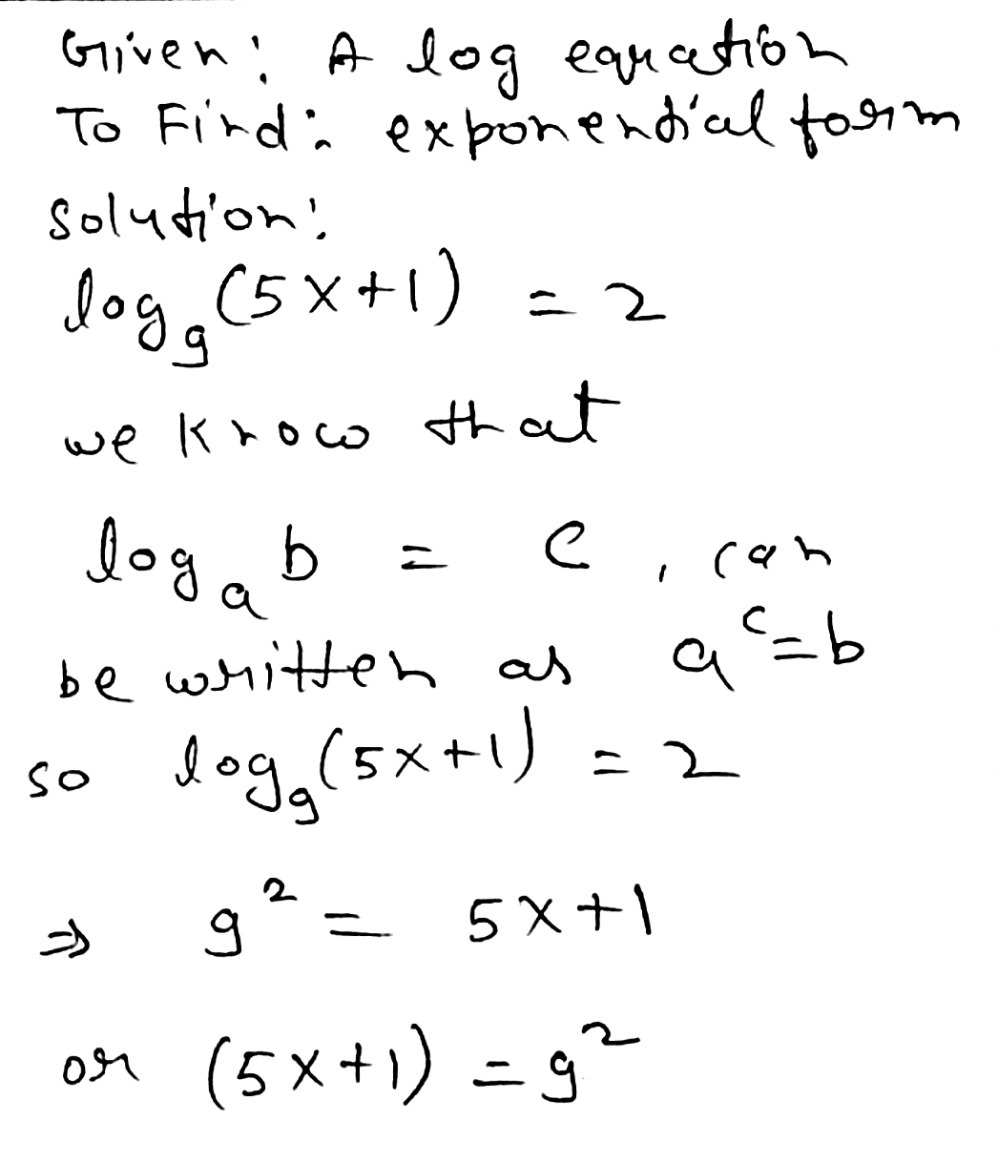 Given: A log equation
To Find: exponential form
solution:
log₉(5x+1) = 2
we know that
logₐ b = c, can
be written as a^c=b
so log₉(5x+1) = 2
⇒ 9² = 5x+1
or (5x+1) = 9²